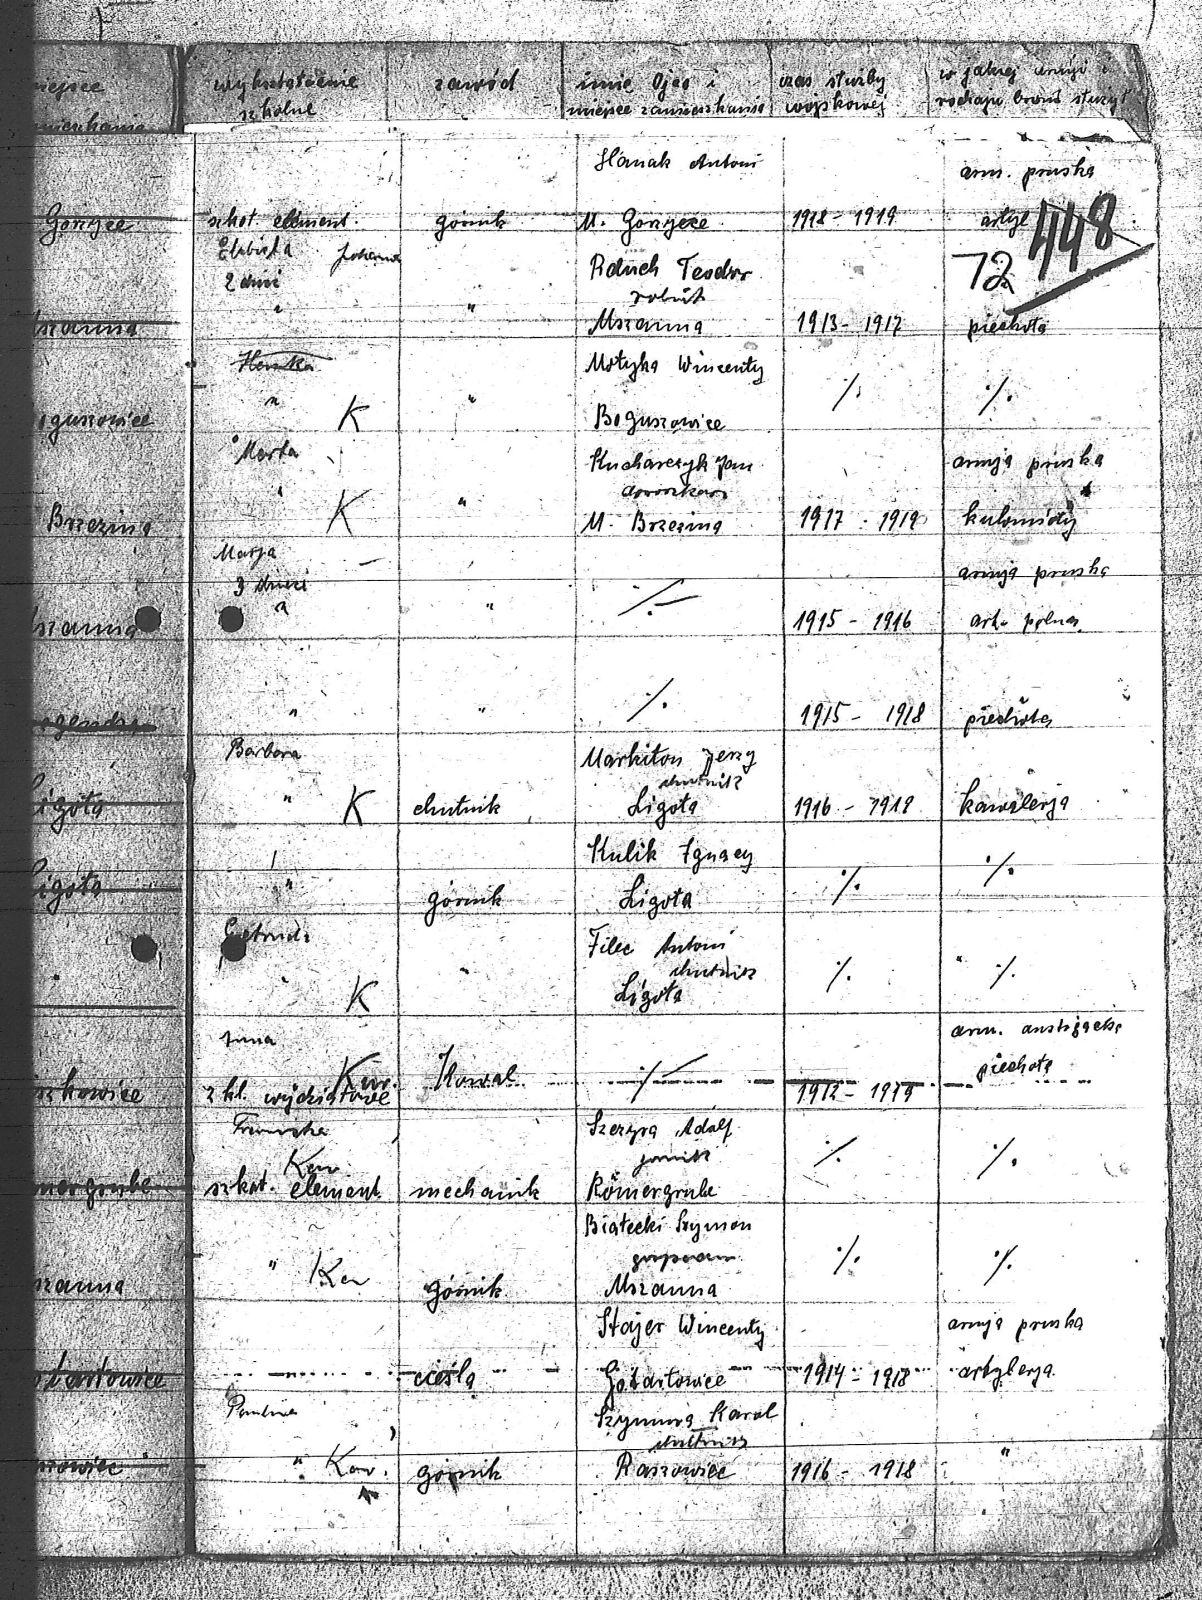 miejsce
wykształcenie zawód imię Ojca i czas służby w jakiej armji i
zamieszkania szkolne miejsce zamieszkania wojskowej rodzaju broni służył
Hanak Antoni arm. pruska
Gorzyce szkoł. element. górnik M. Gorzyce 1918 - 1919 artyl 448
Elżbieta Rduch Teodor 72
2 dzieci robotn
" " Mszanna 1913 - 1917 piechota
Motyka Wincenty ./. ./.
" K " Boguszowice
Marta Kucharczyk Jan armja pruska
" K " M. Brzezina 1917 - 1919 kulomioty
Brzezina
Marja armja pruska
3 dzieci
" " ./. 1915 - 1916 art. polna
" " ./. 1915 - 1918 piechota
Barbara Markiton Jerzy
chutnik
Ligota " K chutnik Ligota 1916 - 1918 kawalerja
Kulik Ignacy ./.
Ligota " górnik Ligota ./.
Gertruda Filec Antoni
chutnik
" K " Ligota ./. " ./.
Anna arm. austrjacka
Kaw. Kowal ./. piechota
2 kl. wydziałowe 1912 - 1919
Franciszka Szczyra Adolf ./. ./.
Kaw górnik
szkoł. element mechanik Römergrube
Białecki Szymon
" Kaw ./. ./.
górnik Mszanna
Stajer Wincenty armja pruska
cieśla Gotartowice 1914 - 1918 artylerja
Paulina Szymura Karol
chutnik
" Kaw. górnik Raszowiec 1916 - 1918 "